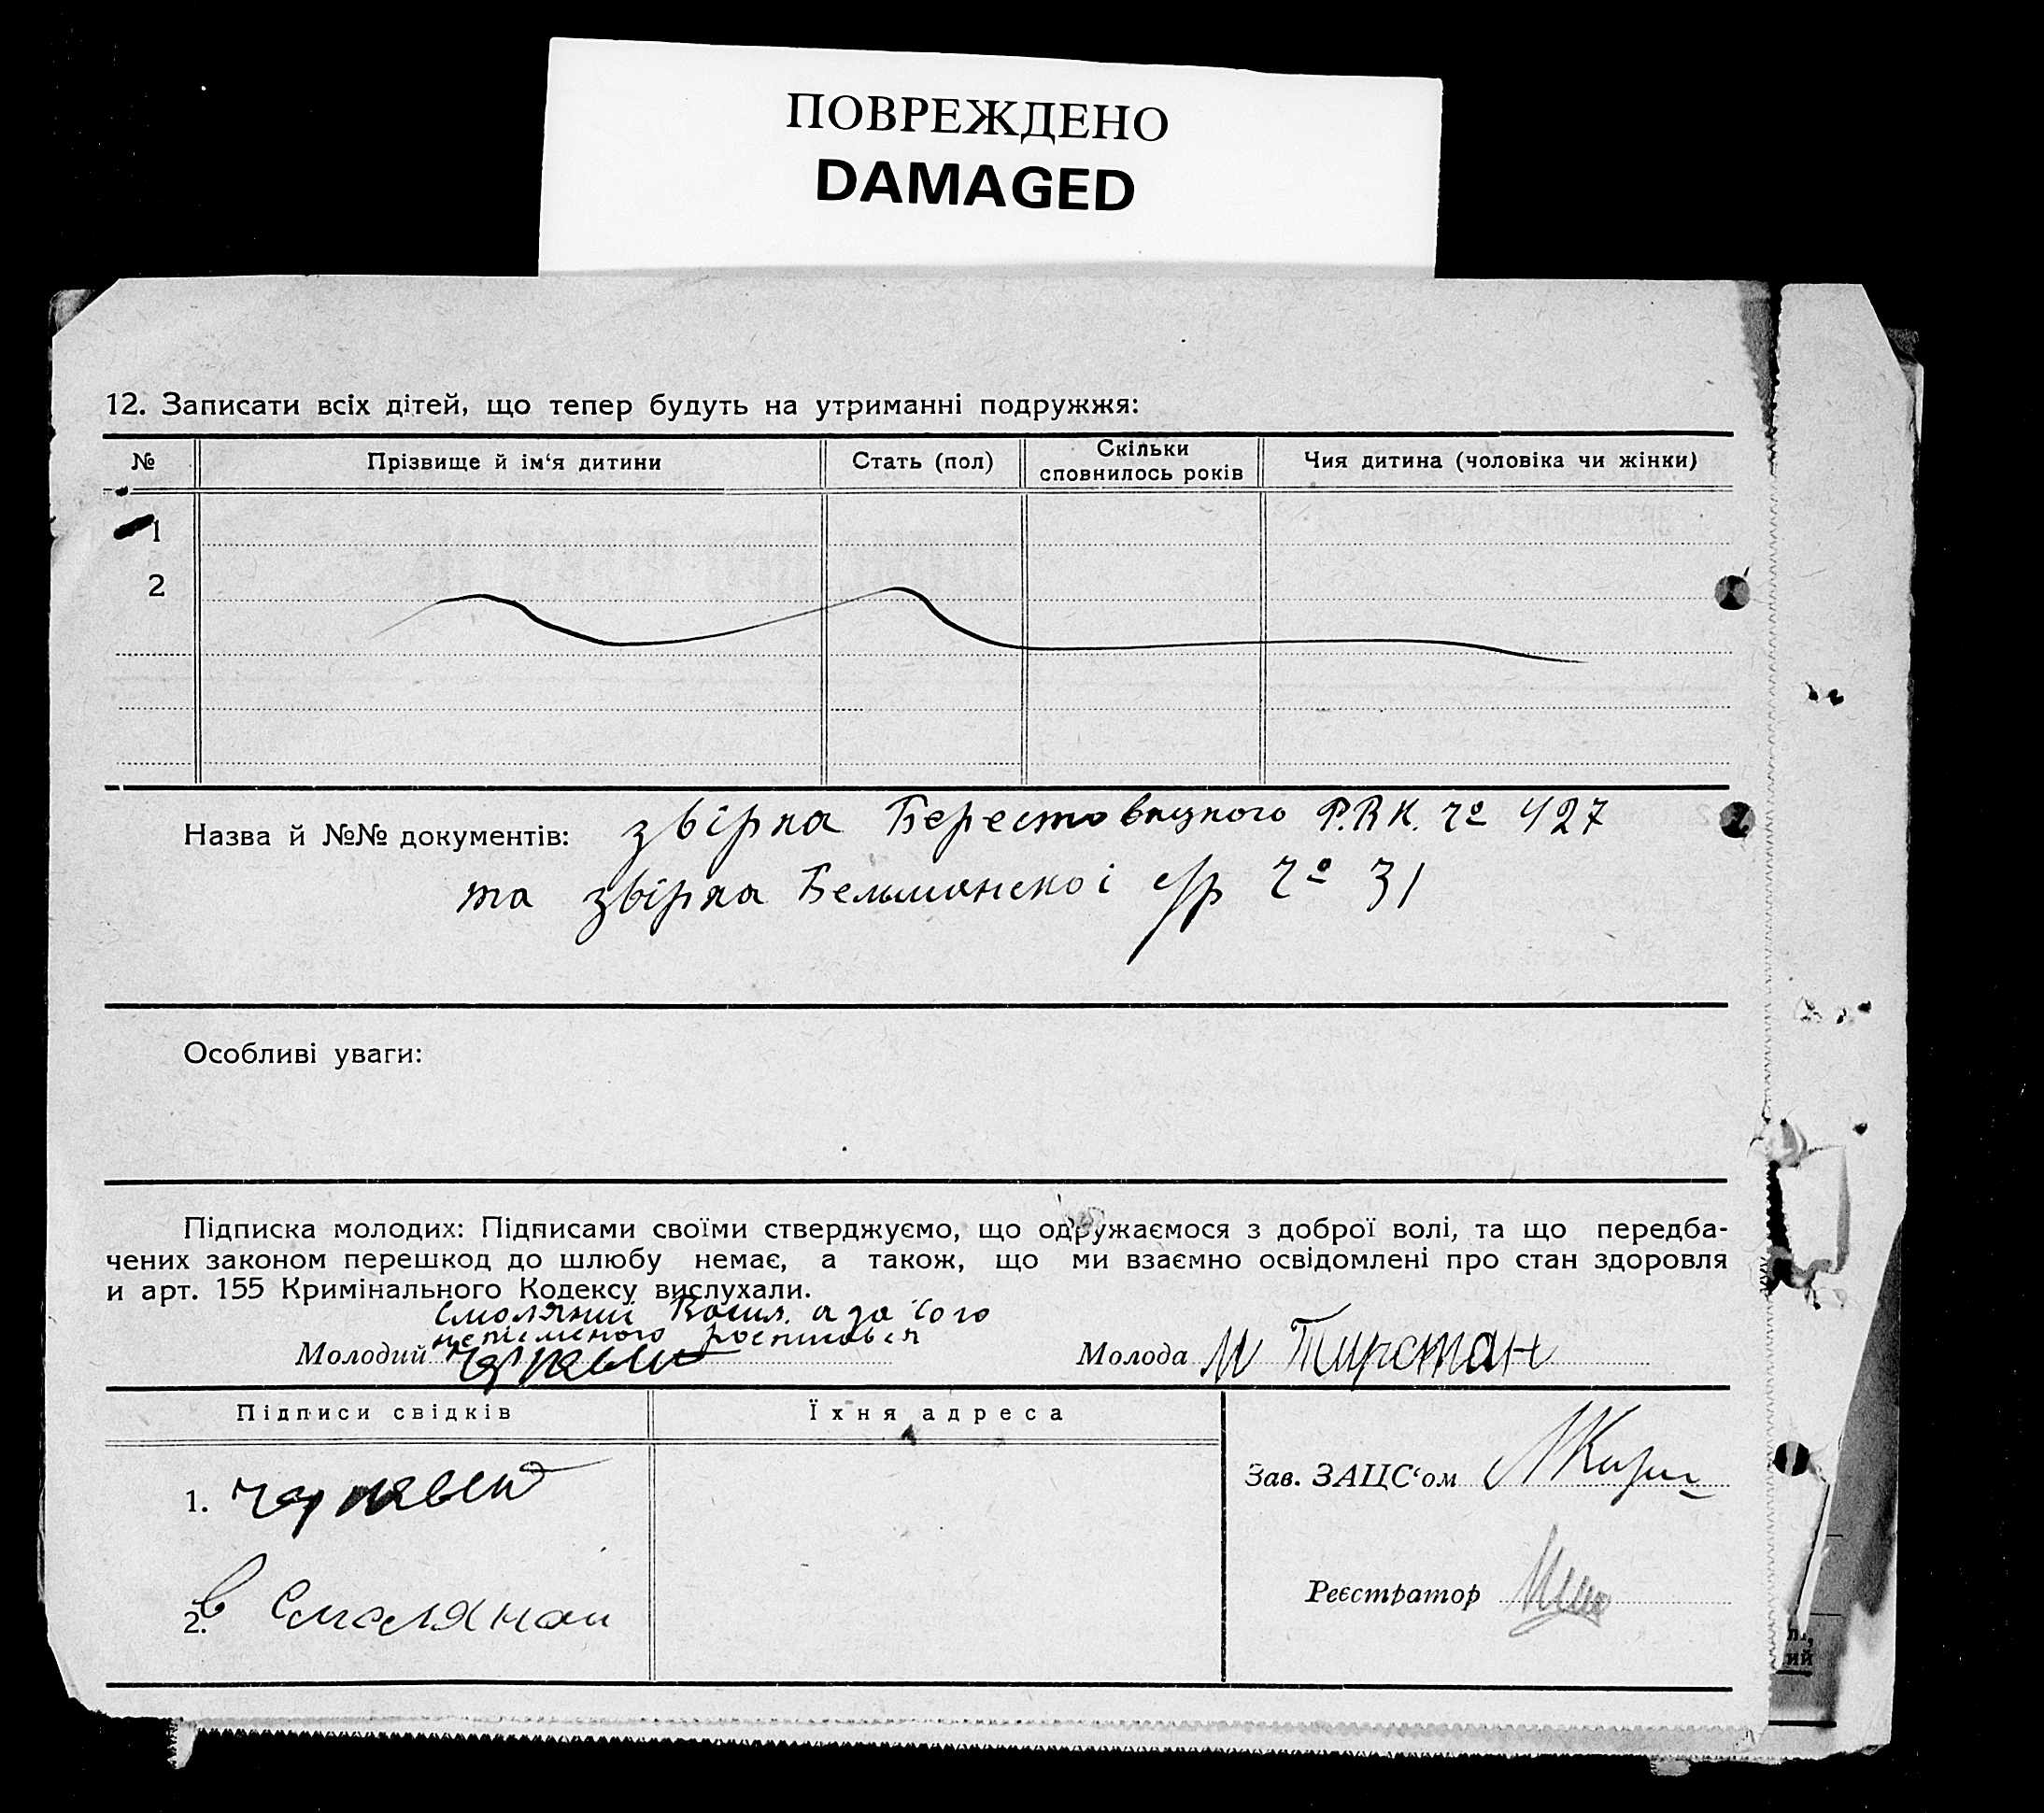 ПОВРЕЖДЕНО
DAMAGED
12. Записати всіх дітей, що тепер будуть на утриманні подружжя:
№ Прізвище й ім‘я дитини Стать (пол) Скільки сповнилось років Чия дитина (чоловіка чи жінки)
1
2
Назва й №№ документів: звірка Берестовецкого Р.В.К. № 427
та звірка Бельманскоі с/р № 31
Особливі уваги:
Підписка молодих: Підписами своїми стверджуємо, що одружаємося з доброї волі, та що передба-
чених законом перешкод до шлюбу немає, а також, що ми взаємно освідомлені про стан здоровля
и арт. 155 Кримінального Кодексу вислухали.
Смоляний а за його
неписменого росписався
Молодий Молода М Тирстан
Підписи свідків Їхня адреса
Зав. ЗАЦС‘ом
1.
2. В Смоляной
Реєстратор